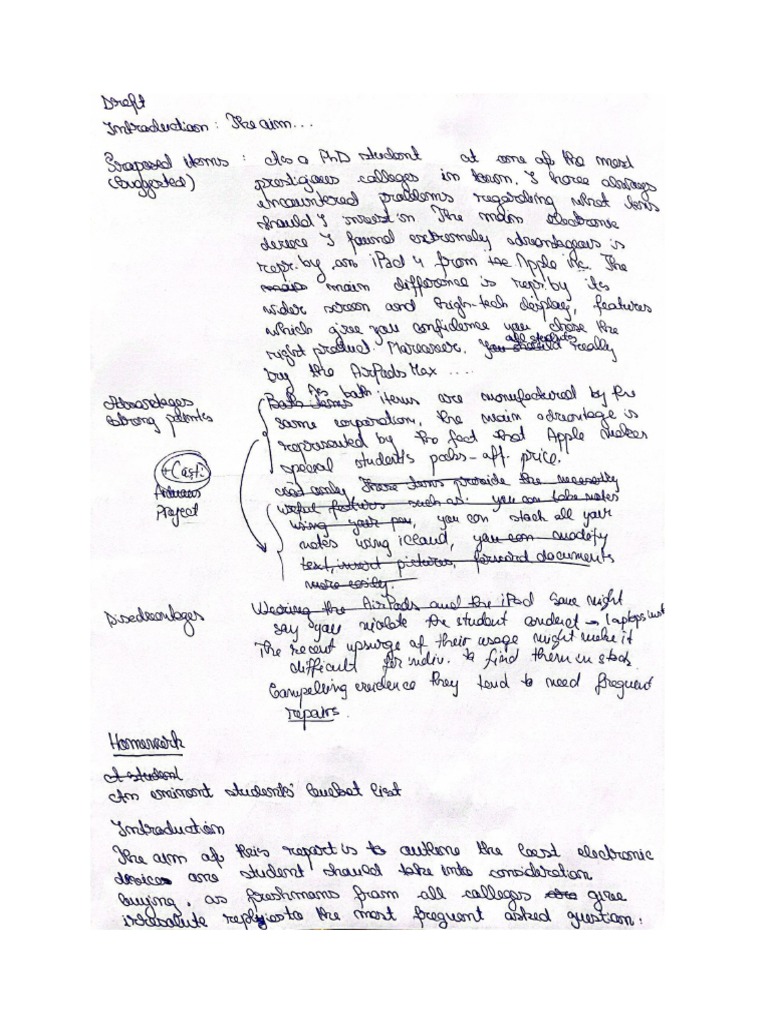 Draft
Introduction: The aim...
Proposed items: As a PhD student at one of the most
(Suggested) prestigious colleges in town, I have always
encountered problems regarding what items
should I invest in The main electronic
device I found extremely advantageous is
repr. by an iPad 4 from the Apple inc. The
main difference is repr. by its
wider screen and high-tech display, features
which give you confidence you chose the
right product. Moreover, You should all students really
buy the AirPads Max ....
Advantages Both items As both items are manufactured by the
strong points same corporation, the main advantage is
represented by the fact that Apple makes
+Casti special students palss-aff. price.
and only These items provide the necessity
Project useful features such as: you can take notes
using your pen, you can stack all your
notes using icloud, you can modify
text, insert pictures, forward documents
more easily.
Disadvantages Wearing the AirPads and the iPad Some might
say you violate the student conduct → laptops
The recent upsurge of their usage might make it
difficult for indiv. to find them in stock
Compelling evidence they tend to need frequent
repairs.
Homework
A student
An eminent students' bucket list
Introduction
The aim of this report is to outline the best electronic
devices one student should take into consideration
buying, as freshmans from all colleges give
irresolute replyies to the most frequent asked question: